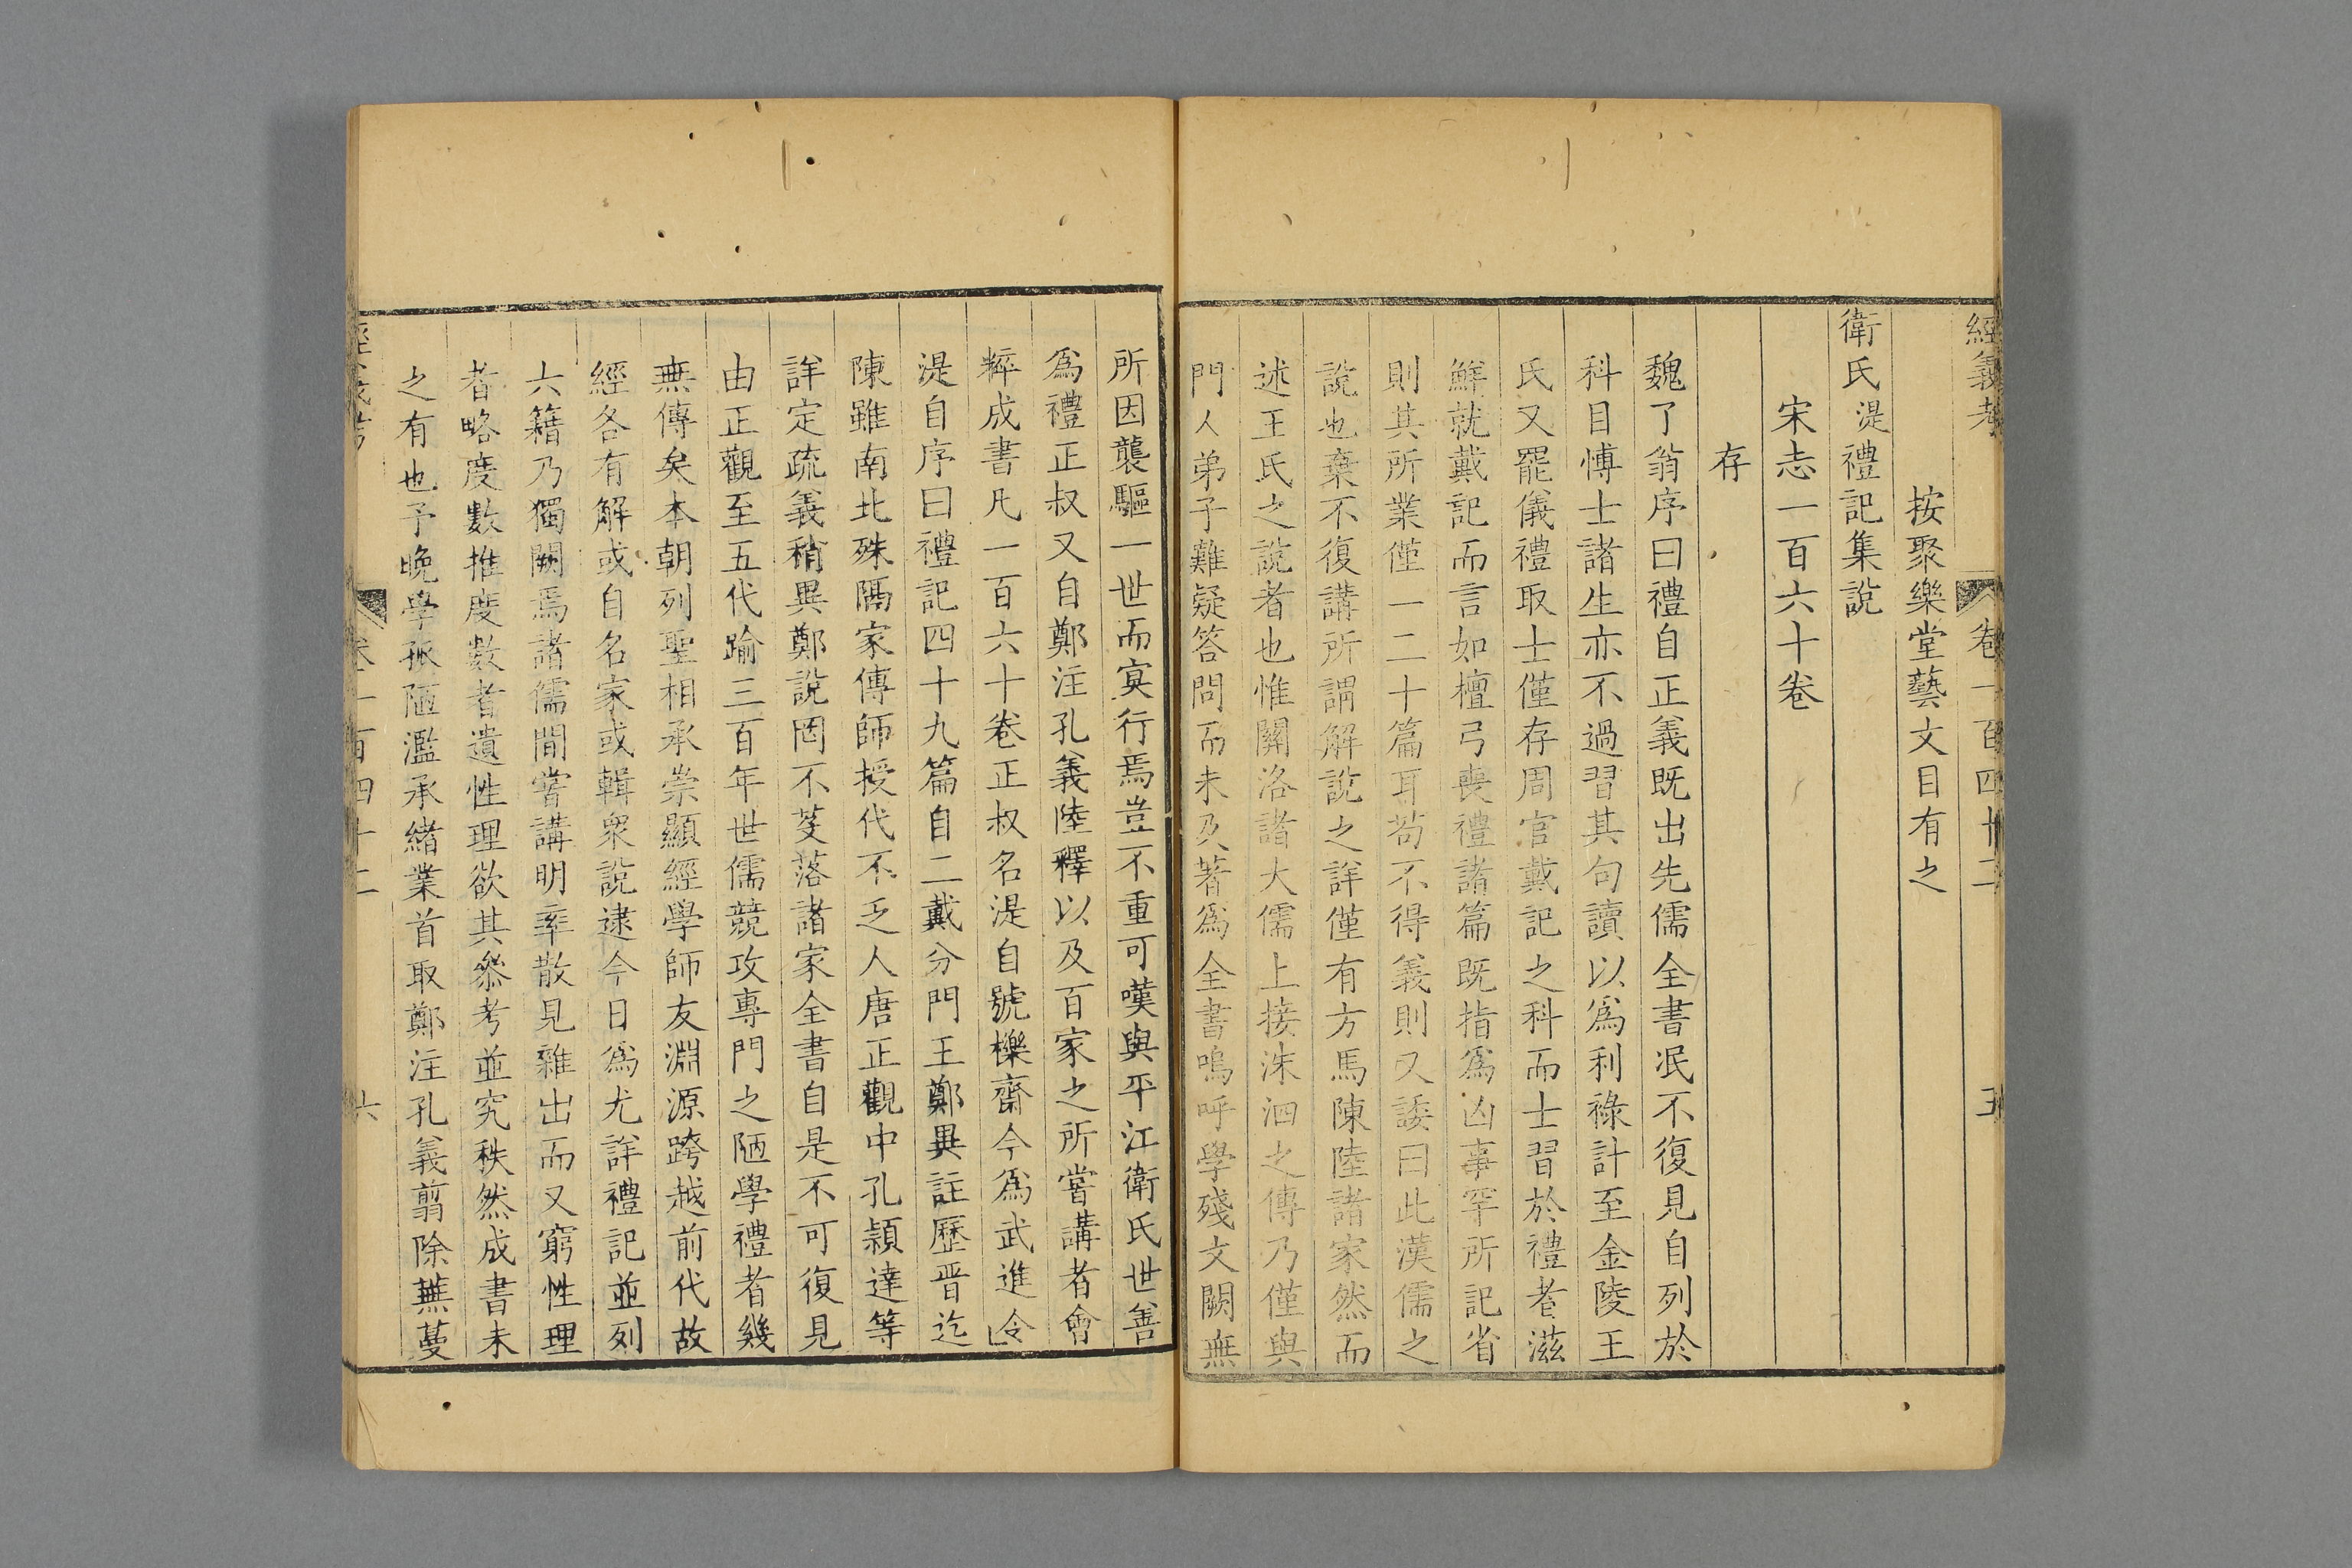 經義考 卷一百四十二 五
按聚樂堂藝文目有之
衛氏湜禮記集說
宋志一百六十卷
存
魏了翁序曰禮自正義既出先儒全書泯不復見自列於
科目博士諸生亦不過習其句讀以爲利祿計至金陵王
氏又罷儀禮取士僅存周官戴記之科而士習於禮者滋
鮮就戴記而言如檀弓喪禮諸篇既指爲凶事罕所記省
則其所業僅一二十篇耳苟不得義則又諉曰此漢儒之
說也棄不復講所謂解說之詳僅有方馬陳陸諸家然而
述王氏之說者也惟關洛諸大儒上接洙泗之傳乃僅與
門人弟子難疑答問而未及著爲全書嗚呼學殘文闕無
所因襲驅一世而冥行焉豈不重可嘆與平江衛氏世善
爲禮正叔又自鄭注孔義陸釋以及百家之所嘗講者會
粹成書凡一百六十卷正叔名湜自號櫟齋今爲武進令
湜自序曰禮記四十九篇自二戴分門王鄭異註歷晉迄
陳雖南北殊隔家傳師授代不乏人唐正觀中孔穎達等
詳定疏義稍異鄭說罔不芟落諸家全書自是不可復見
由正觀至五代踰三百年世儒競攻專門之陋學禮者幾
無傳矣本朝列聖相承崇顯經學師友淵源跨越前代故
經各有解或自名家或輯衆說逮今日爲尤詳禮記並列
六籍乃獨闕焉諸儒間嘗講明率散見雜出而又窮性理
者略度數推度數者遺性理欲其叅考並究秩然成書未
之有也予晚學孤陋濫承緒業首取鄭注孔義翦除蕪蔓
經義考 卷一百四十二 六